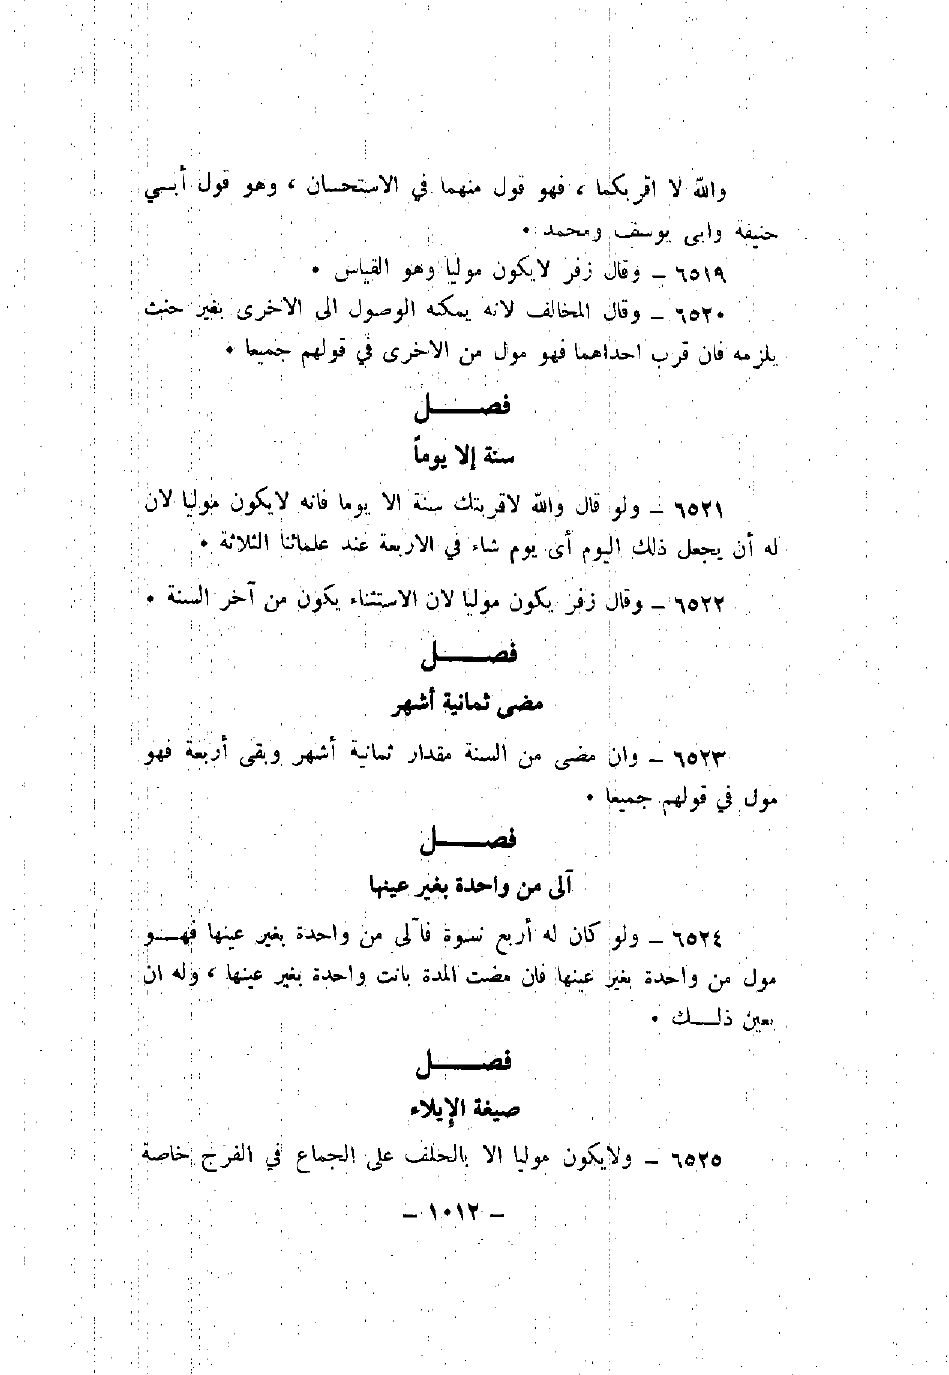 والله لا اقربكما ، فهو قول منهما في الاستحسان ، وهو قول أبـي
حنيفة وابى يوسف ومحمد ٠
٦٥١٩ ــ وقال زفر لايكون موليا وهو القياس ٠
٦٥٢٠ ــ وقال المخالف لانه يمكنه الوصول الى الاخرى بغير حنث
يلزمه فان قرب احداهما فهو مول من الاخرى في قولهم جميعا ٠
فصـــــل
سنة إلا يوماً
٦٥٢١ ــ ولو قال والله لاقربتك سنة الا يوما فانه لايكون موليا لان
له أن يجعل ذلك اليوم أى يوم شاء في الاربعة عند علمائنا الثلاثة ٠
٦٥٢٢ ــ وقال زفر يكون موليا لان الاستثناء يكون من آخر السنة ٠
فصـــــل
مضى ثمانية أشهر
٦٥٢٣ ــ وان مضى من السنة مقدار ثمانية أشهر وبقى أربعة فهو
مول في قولهم جميعا ٠
فصـــــل
آلى من واحدة بغير عينها
٦٥٢٤ ــ ولو كان له أربع نسوة فآلى من واحدة بغير عينها فهــو
مول من واحدة بغير عينها فان مضت المدة بانت واحدة بغير عينها ، وله ان
يعين ذلــك ٠
فصـــــل
صيغة الإيلاء
٦٥٢٥ ــ ولايكون موليا الا بالحلف على الجماع في الفرج خاصة
ــ ١٠١٢ ــ